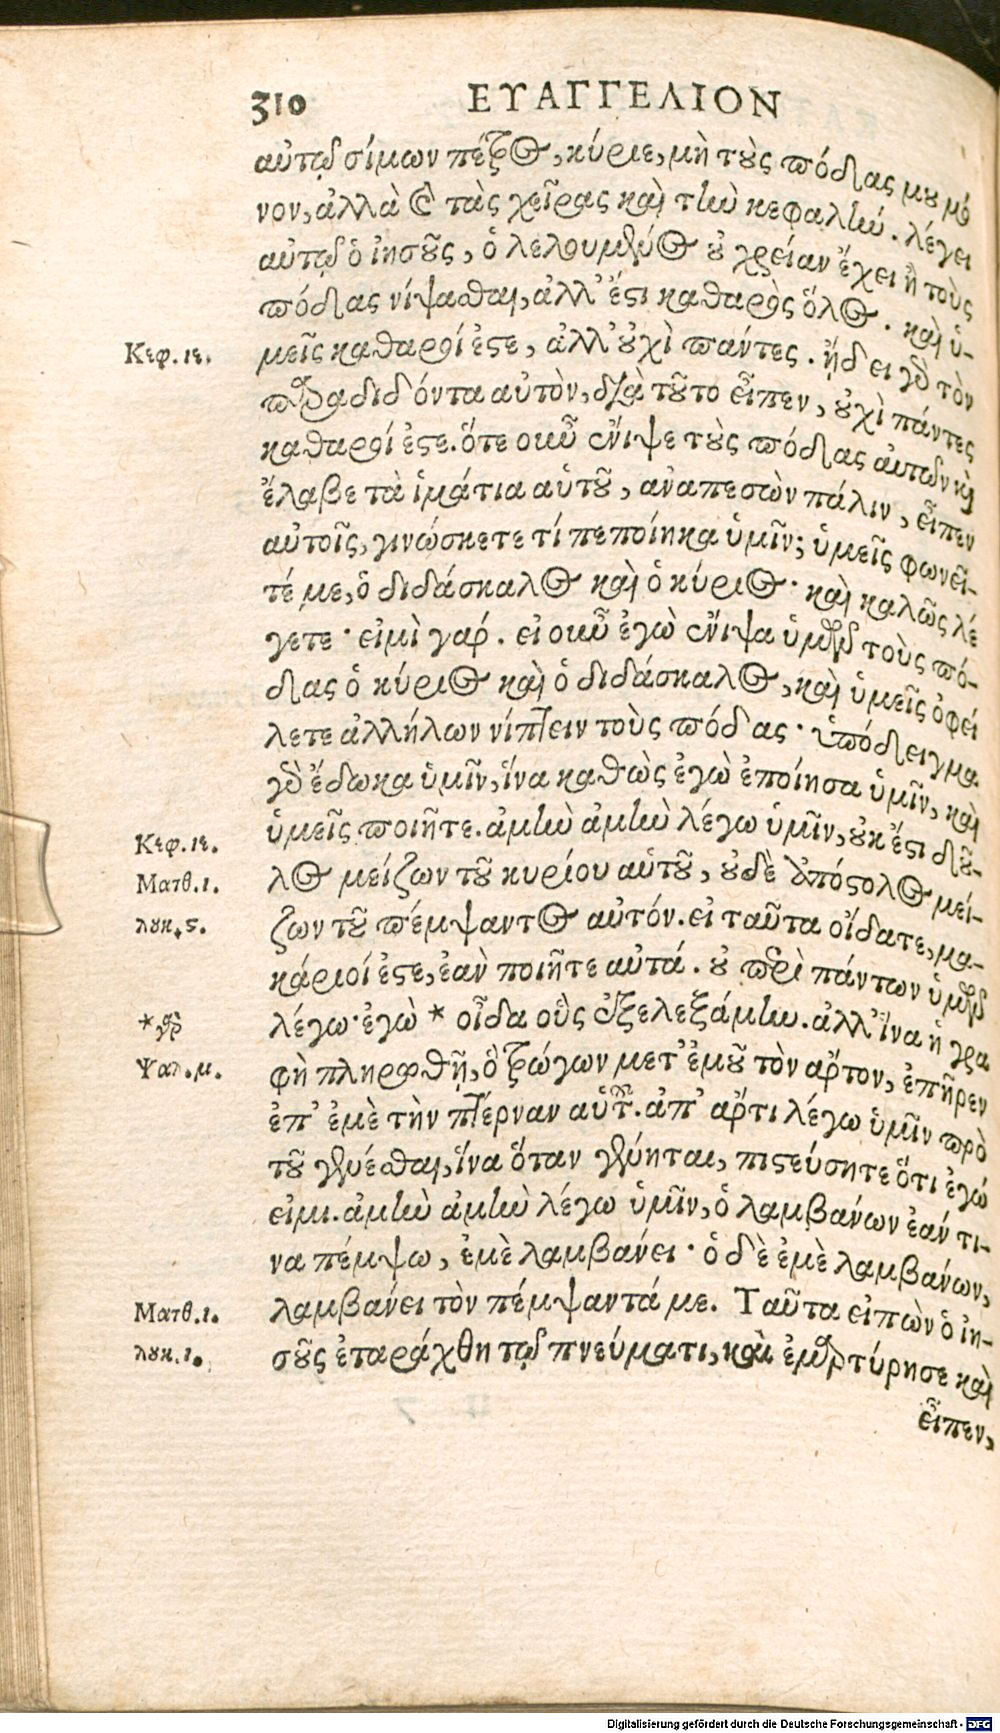 310 ΕΥΑΓΓΕΛΙΟΝ
αὐτῷ σίμων πέτρος, κύριε, μὴ τοὺς πόδας μου μό
νον, ἀλλὰ καὶ τὰς χεῖρας καὶ τὴν κεφαλήν. λέγει
αὐτῷ ὁ ἰησοῦς, ὁ λελουμένος οὐ χρείαν ἔχει ἢ τοὺς
πόδας νίψασθαι, ἀλλ' ἔστι καθαρὸς ὅλος. καὶ ὑ-
Κεφ. ιε. μεῖς καθαροί ἐστε, ἀλλ' οὐχὶ πάντες. ᾔδει γὰρ τὸν
παραδιδόντα αὐτὸν, διὰ τοῦτο εἶπεν, οὐχὶ πάντες
καθαροί ἐστε. ὅτε οὖν ἔνιψε τοὺς πόδας αὐτῶν καὶ
ἔλαβε τὰ ἱμάτια αὑτοῦ, ἀναπεσὼν πάλιν, εἶπεν
αὐτοῖς, γινώσκετε τί πεποίηκα ὑμῖν; ὑμεῖς φωνεῖ-
τέ με, ὁ διδάσκαλος καὶ ὁ κύριος· καὶ καλῶς λέ
γετε· εἰμὶ γάρ. εἰ οὖν ἐγὼ ἔνιψα ὑμῶν τοὺς πό-
δας ὁ κύριος καὶ ὁ διδάσκαλος, καὶ ὑμεῖς ὀφεί
λετε ἀλλήλων νίπτειν τοὺς πόδας· ὑπόδειγμα
γὰρ ἔδωκα ὑμῖν, ἵνα καθὼς ἐγὼ ἐποίησα ὑμῖν, καὶ
Κεφ. ιε. ὑμεῖς ποιῆτε. ἀμὴν ἀμὴν λέγω ὑμῖν, οὐκ ἔστι δοῦ-
Ματθ. ι. λος μείζων τοῦ κυρίου αὑτοῦ, οὐδὲ ἀπόστολος μεί-
λουκ. ϛ. ζων τοῦ πέμψαντος αὐτόν. εἰ ταῦτα οἴδατε, μα-
κάριοί ἐστε, ἐὰν ποιῆτε αὐτά. οὐ περὶ πάντων ὑμῶν
*γὰρ λέγω· ἐγὼ * οἶδα οὓς ἐξελεξάμην. ἀλλ' ἵνα ἡ γρα
Ψαλ. μ. φὴ πληρωθῇ, ὁ τρώγων μετ' ἐμοῦ τὸν ἄρτον, ἐπῆρεν
ἐπ' ἐμὲ τὴν πτέρναν αὑτοῦ. ἀπ' ἄρτι λέγω ὑμῖν πρὸ
τοῦ γενέσθαι, ἵνα ὅταν γένηται, πιστεύσητε ὅτι ἐγώ
εἰμι. ἀμὴν ἀμὴν λέγω ὑμῖν, ὁ λαμβάνων ἐάν τι-
να πέμψω, ἐμὲ λαμβάνει· ὁ δὲ ἐμὲ λαμβάνων,
Ματθ. ι. λαμβάνει τὸν πέμψαντά με. Ταῦτα εἰπὼν ὁ ἰη-
λουκ. ι. σοῦς ἐταράχθη τῷ πνεύματι, καὶ ἐμαρτύρησε καὶ
εἶπεν,
Digitalisierung gefördert durch die Deutsche Forschungsgemeinschaft - DFG